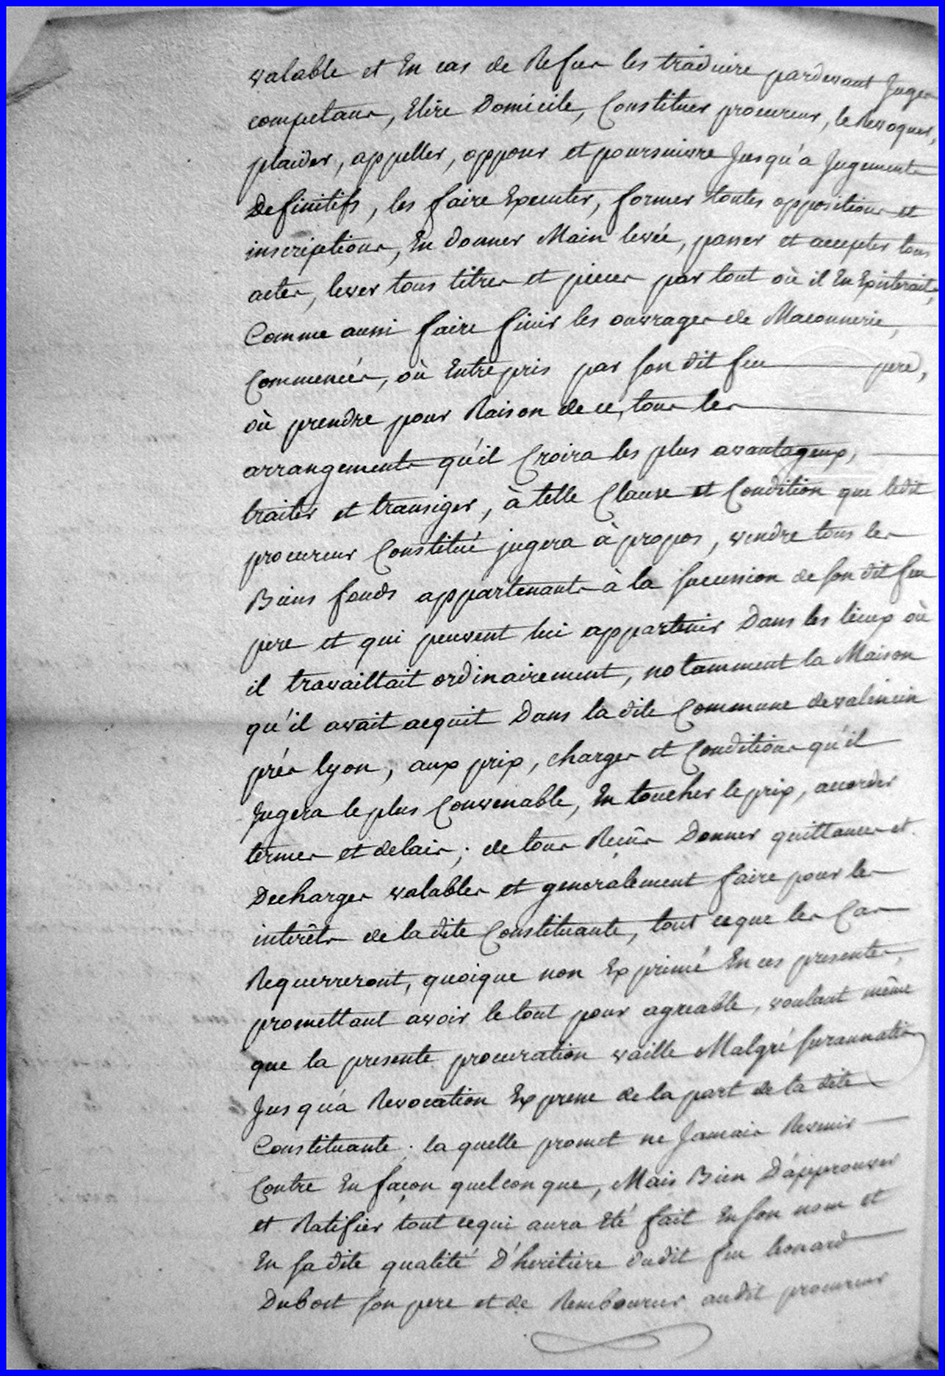 valable et En cas de Refus les traduire pardevant Juges
competans, Elire Domicile, Constituer procureur, le Revoquer,
plaider, appeller, opposer et poursuivre Jusqu'à Jugements
Definitifs, les faire Executer, former toutes oppositions et
inscriptions, En donner Main levée, passer et accepter tous
actes, lever tous titres et pieces par tout où il En Existerait,
Comme aussi faire finir les ouvrages de Maconnerie,
Commencés, où Entrepris par son dit feu pere,
où prendre pour Raison de ce, tous les
arrangements qu'il Croira les plus avantageux,
traiter et transiger, à telle Clause et Condition que ledit
procureur Constitué jugera à propos, vendre tous les
Biens fonds appartenants à la succession de son dit feu
pere et qui peuvent lui appartenir Dans les lieux où
il travaillait ordinairement, notamment la Maison
qu'il avait acquit Dans la dite Commune de valincin
prés lyon, aux prix, charges et Conditions qu'il
Jugera le plus Convenable, En toucher le prix, accorder
termes et delais; de tous Reçûs Donner quittances et
Decharges valables et generalement faire pour les
interêts de la dite Constituante, tout ceque les Cas
Requerreront, quoique non Exprimé En ces presentes,
promettant avoir le tout pour agreable, voulant même
que la presente procuration vaille Malgré surannation
Jusqu'à Revocation Expresse de la part de la dite
Constituante. la quelle promet ne Jamais Revenir
Contre En façon quelconque, Mais Bien D'approuver
et Ratifier tout cequi aura Eté fait En son nom et
En sa dite qualité D'heritiere dudit feu leonard
Dubost son pere et de Rembourser audit procureur